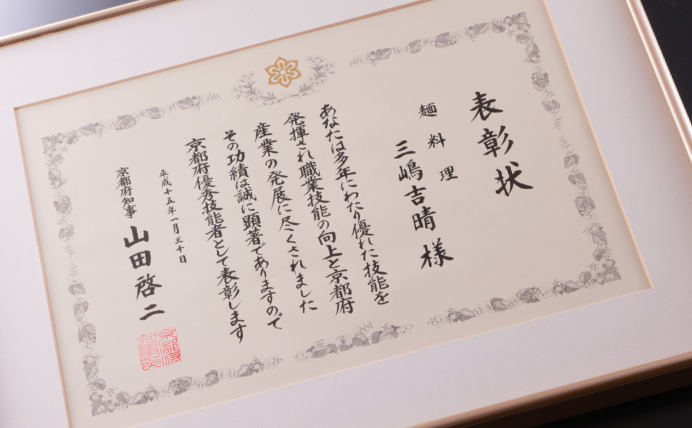 表彰状
麺料理
三嶋吉晴様
あなたは多年にわたり優れた技能を
発揮され職業技能の向上と京都府
産業の発展に尽くされました
その功績は誠に顕著でありますので
京都府優秀技能者として表彰します
平成十五年一月三十日
京都府知事 山田啓二